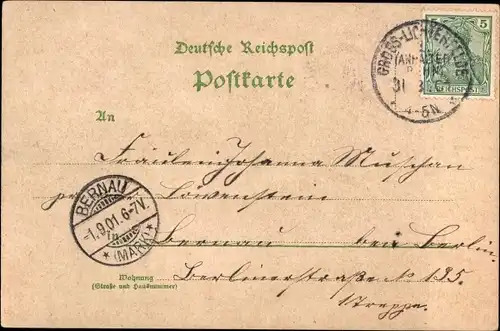 Deutsche Reichspost
Postkarte
GROSS-LICHTERFELDE
(ANHALTER
31
4-5N
5
REICHSPOST
An
Fräulein Johanna Muschan
per Löwenstein
BERNAU
-1.9.01.6-7V.
* (MARK) *
Bernau bei Berlin
Wohnung
(Straße und Hausnummer)
Berlinerstraße No 135.
1 Treppe.